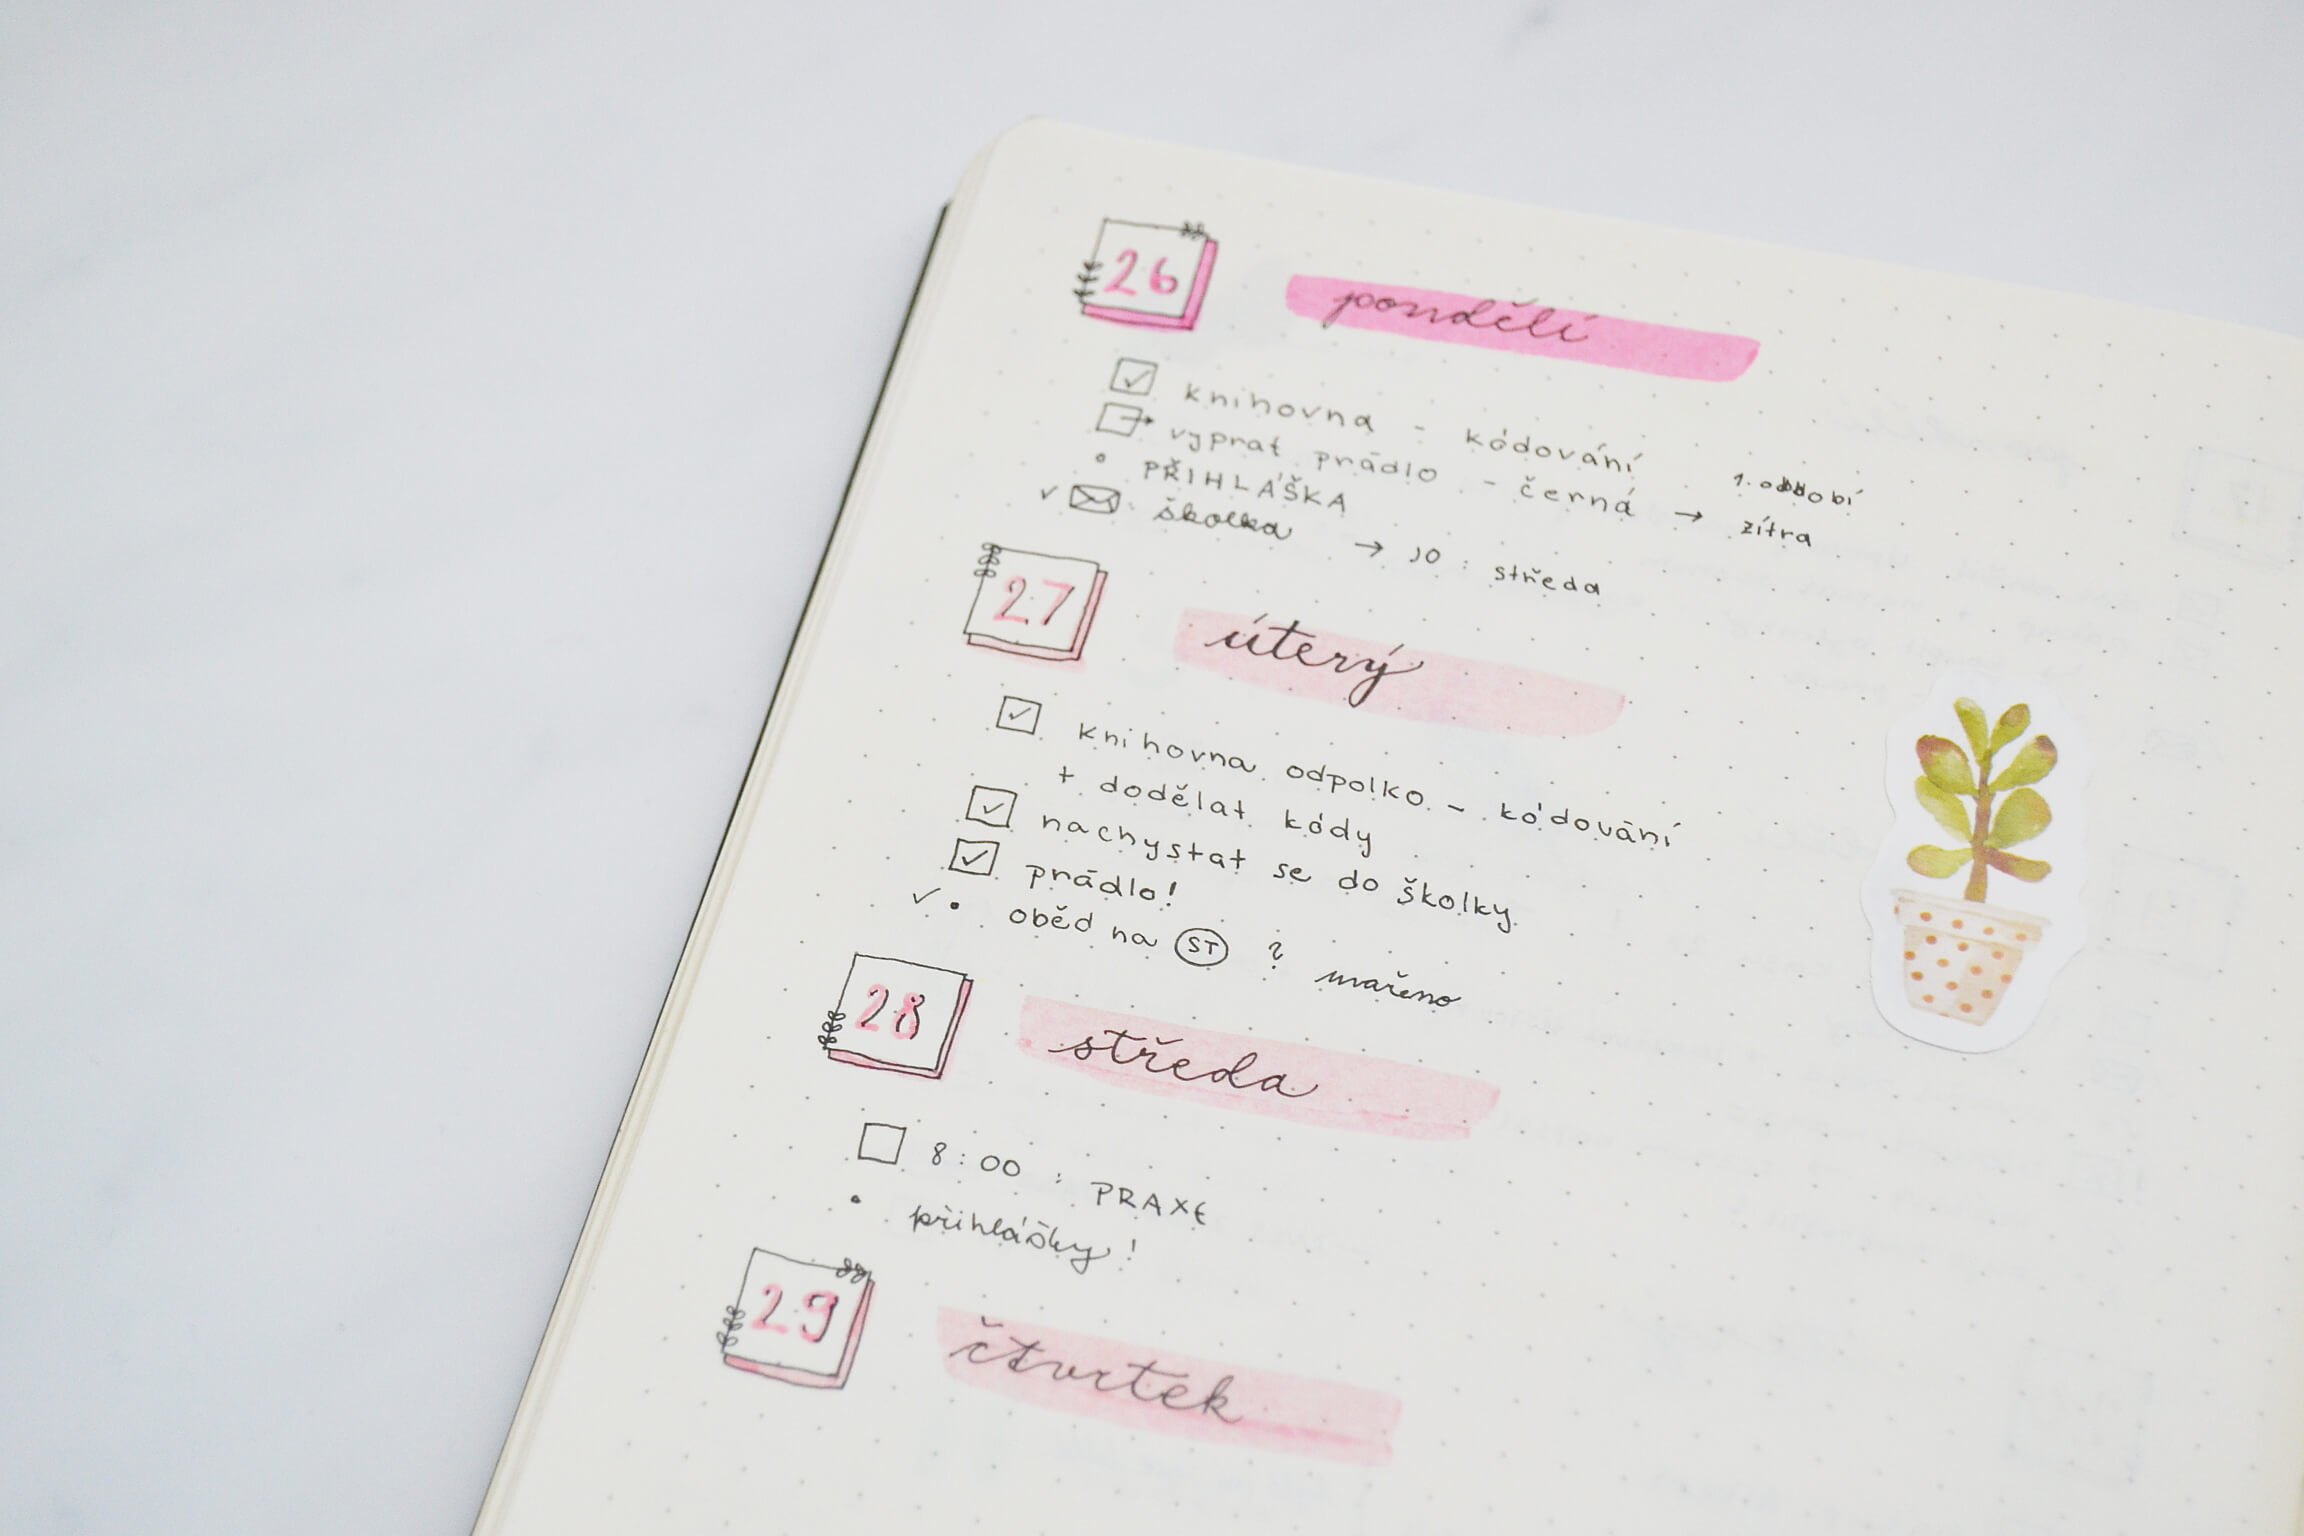 26 pondělí
knihovna - kódování 1. období
vyprat prádlo - černá → zítra
PŘIHLÁŠKA
školka → 10 : středa
27 úterý
knihovna odpolko - kódování
+ dodělat kódy
nachystat se do školky
prádlo!
oběd na ST ? uvařeno
28 středa
8:00 : PRAXE
přihlášky!
29 čtvrtek